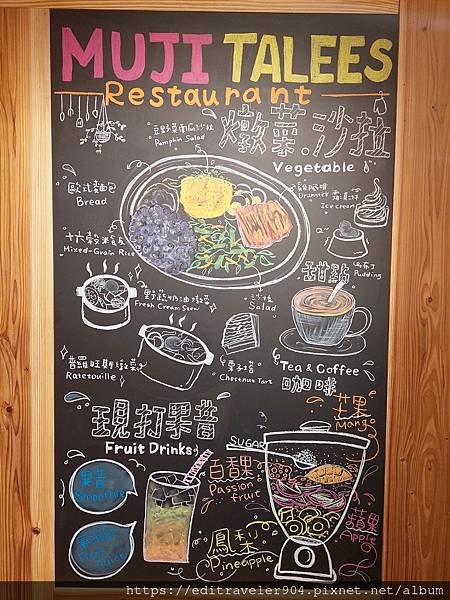 MUJI TALEES
Restaurant
燉菜.沙拉
Vegetable
Pumpkin Salad
歐式麵包
Bread
Drumstick
Ice cream
十六穀米飯
Mixed-Grain Rice
甜點
布丁
Pudding
野蔬奶油燉菜
Fresh Cream Stew
沙拉
Salad
普羅旺斯燉菜
Ratetouille
栗子塔
Chestnut Tart
Tea & Coffee
咖啡
現打果昔
Fruit Drinks!
芒果
Mango
SUGAR
百香果
Passion fruit
果昔
Smoothie
Juice
鳳梨
Pineapple
蘋果
Apple
https://editraveler904.pixnet.net/album